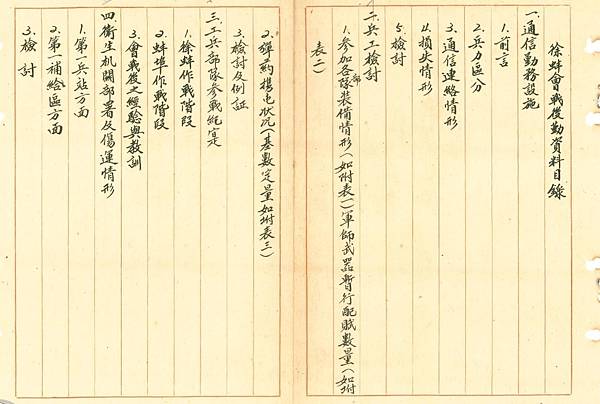 徐蚌會戰後勤資料目錄
一、通信勤務設施
1.前言
2.兵力區分
3.通信連絡情形
4.損失情形
5.檢討
二、兵工檢討
1.參加各部隊裝備情形(如附表一)軍師武器暫行配賦數量(如附
表二)
2.彈藥携屯狀況(基數定量如附表三)
3.檢討及例証
三、工兵部隊參戰紀實
1.徐蚌作戰階段
2.蚌埠作戰階段
3.會戰後之經驗與教訓
四、衛生机關部署及傷運情形
1.第一兵站方面
2.第一補給區方面
3.檢討